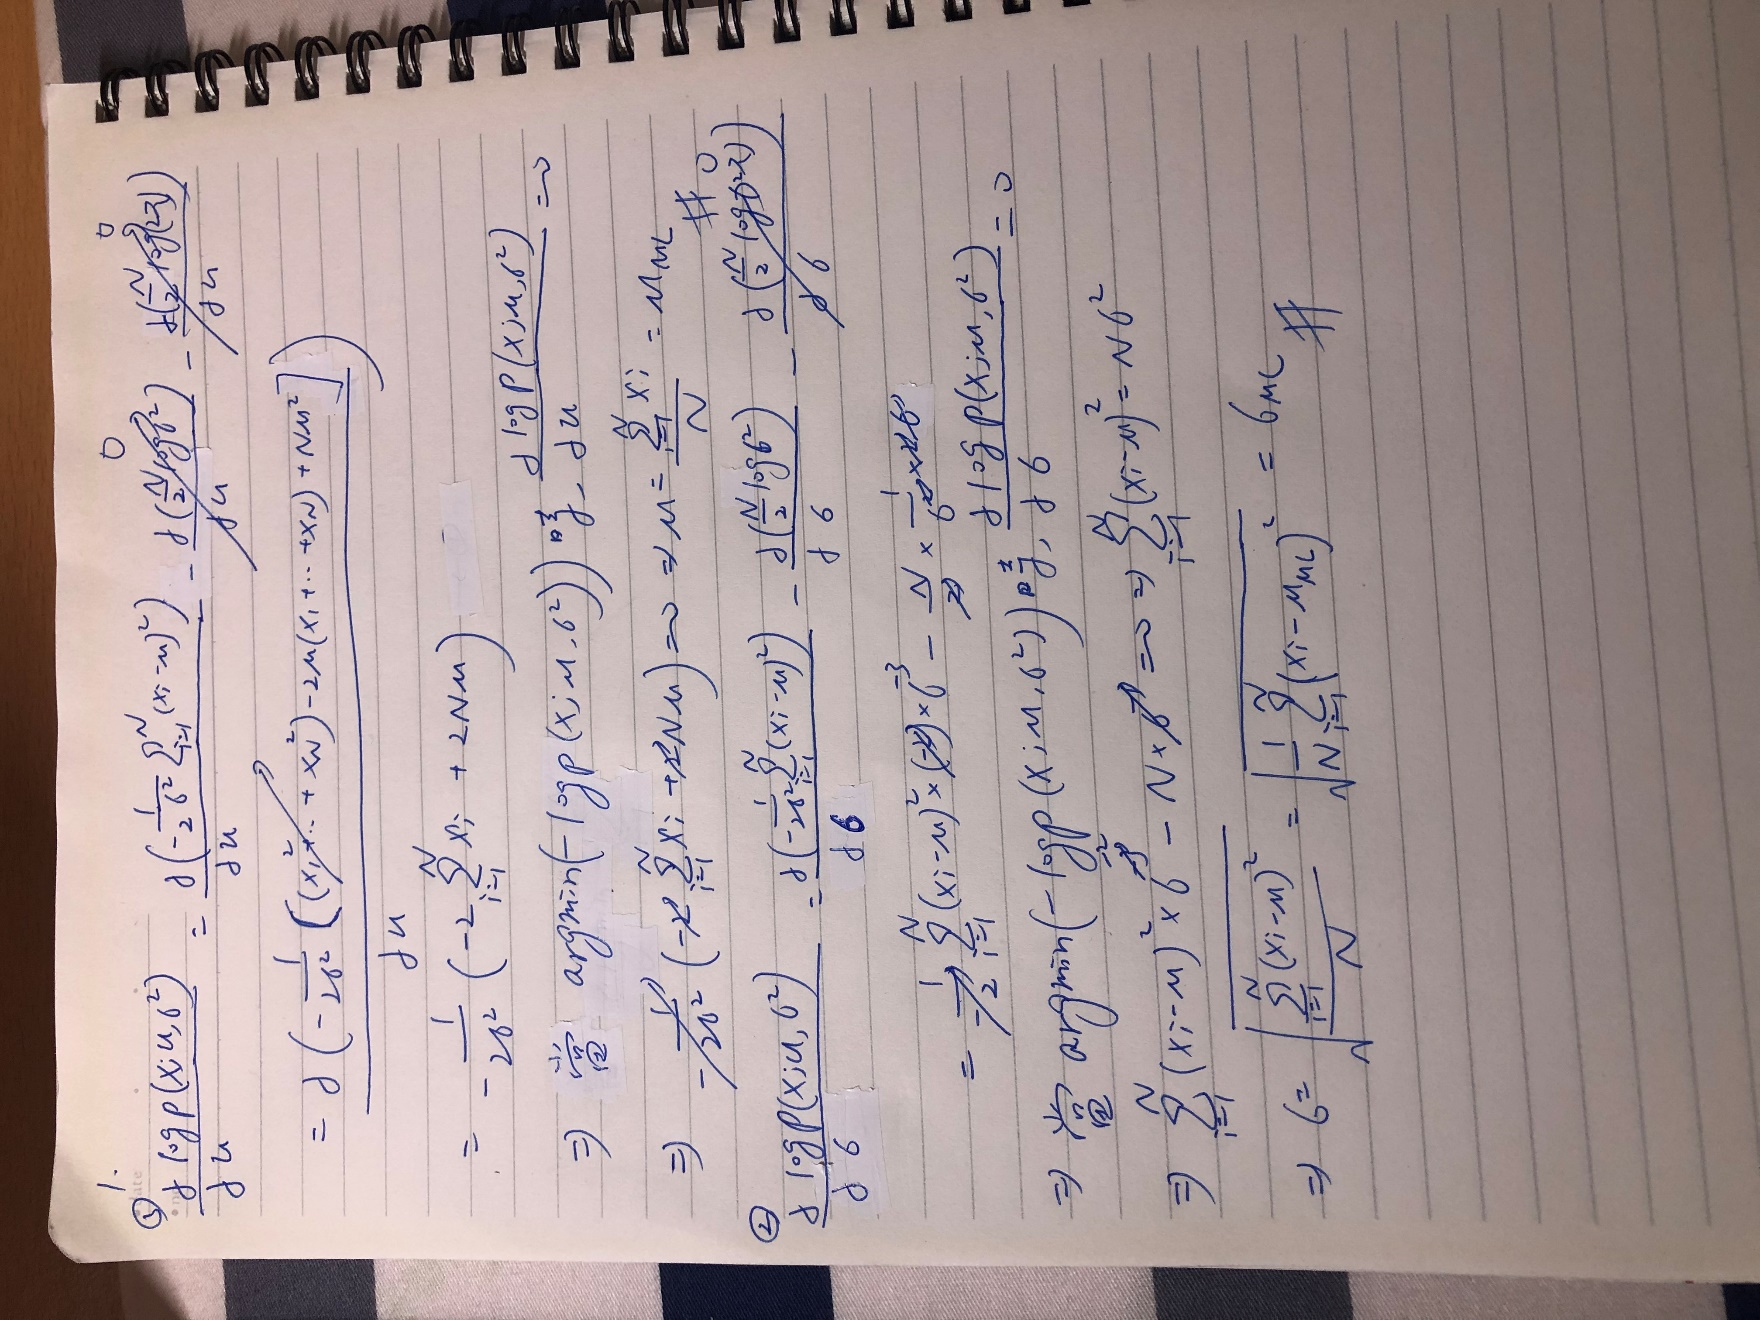 1.
① ∂ log P(x;μ,σ²) / ∂μ = ∂(-1/2σ² Σ_{i=1}^{N} (xi-μ)²) / ∂μ - ∂(N/2 log σ²) / ∂μ → 0 - ∂(N/2 log(2π)) / ∂μ → 0
= ∂(-1/2σ² [(x₁²+...+x_N²) - 2μ(x₁+...+x_N) + Nμ²]) / ∂μ
= -1/2σ² (-2 Σ_{i=1}^{N} xi + 2Nμ)
⇒ 當 argmin(-log P(x;μ,σ²)) 時, ∂ log P(x;μ,σ²) / ∂μ = 0
⇒ -1/2σ² (-2 Σ_{i=1}^{N} xi + 2Nμ) = 0 ⇒ μ = Σ_{i=1}^{N} xi / N = μ_ML #
② ∂ log P(x;μ,σ²) / ∂σ = ∂(-1/2σ² Σ_{i=1}^{N} (xi-μ)²) / ∂σ - ∂(N/2 log σ²) / ∂σ - ∂(N/2 log(2π)) / ∂σ → 0
= -1/2 Σ_{i=1}^{N} (xi-μ)² × (-2) × σ⁻³ - N/2 × 1/σ² × 2σ
⇒ 當 argmin(-log P(x;μ,σ²)) 時, ∂ log P(x;μ,σ²) / ∂σ = 0
⇒ Σ_{i=1}^{N} (xi-μ)² × σ⁻² - N × σ⁻¹ = 0 ⇒ Σ_{i=1}^{N} (xi-μ)² = Nσ²
⇒ σ = √(Σ_{i=1}^{N} (xi-μ)² / N) = √(1/N Σ_{i=1}^{N} (xi-μ_ML)²) = σ_ML #